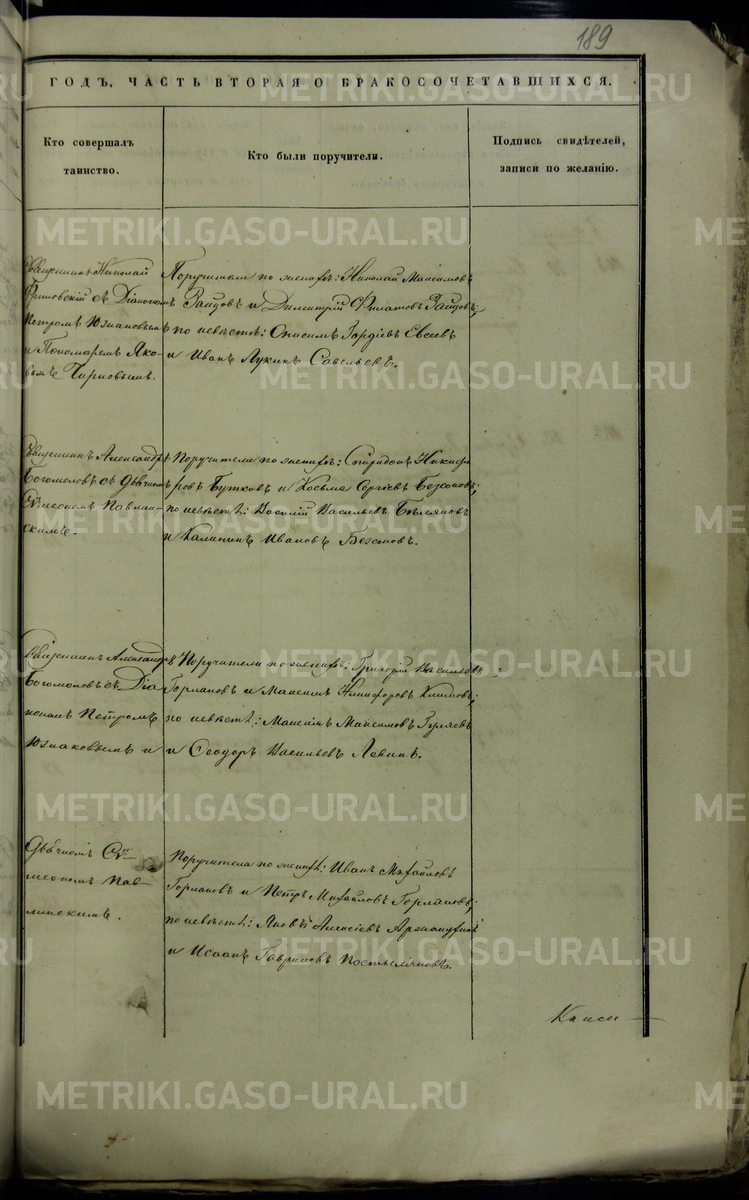 189
ГОДЪ, ЧАСТЬ ВТОРАЯ О БРАКОСОЧЕТАВШИХСЯ.
Кто совершалъ
таинство.
Кто были поручители.
Подпись свидѣтелей,
записи по желанію.
Священникъ Николай
съ Діакономъ
Петромъ Южаковымъ
и Пономаремъ Яко-
вомъ
Поручители по женихѣ: Николай Максимовъ
Зайцовъ и Димитрій Филатовъ Зайцовъ;
по невѣстѣ: Онисимъ Гордіевъ Евсеевъ
и Иванъ Лукинъ Савельевъ.
Священникъ Александръ
Богомоловъ съ дьячкомъ
Симеономъ Павлин-
скимъ.
Поручители по женихѣ: Спиридонъ Никифо
ровъ Бутковъ и Косьма Сергѣевъ Безсоновъ;
по невѣстѣ: Василій Васильевъ
и Калинникъ Ивановъ Безсоновъ.
Священникъ Александръ
Богомоловъ съ Діа
кономъ Петромъ
Южаковымъ и
Поручители по женихѣ: Григорій Васильевъ
Горлановъ и Максимъ Никифоровъ
по невѣстѣ: Максимъ Максимовъ Гуляевъ
и Ѳеодоръ Васильевъ Левинъ.
Дьячкомъ Си
меономъ Пав-
линскимъ.
Поручители по женихѣ: Иванъ Михайловъ
Горлановъ и Петръ Михайловъ Горлановъ;
по невѣстѣ: Яковъ Алексіевъ
и Исаакъ Гавриловъ
METRIKI.GASO-URAL.RU